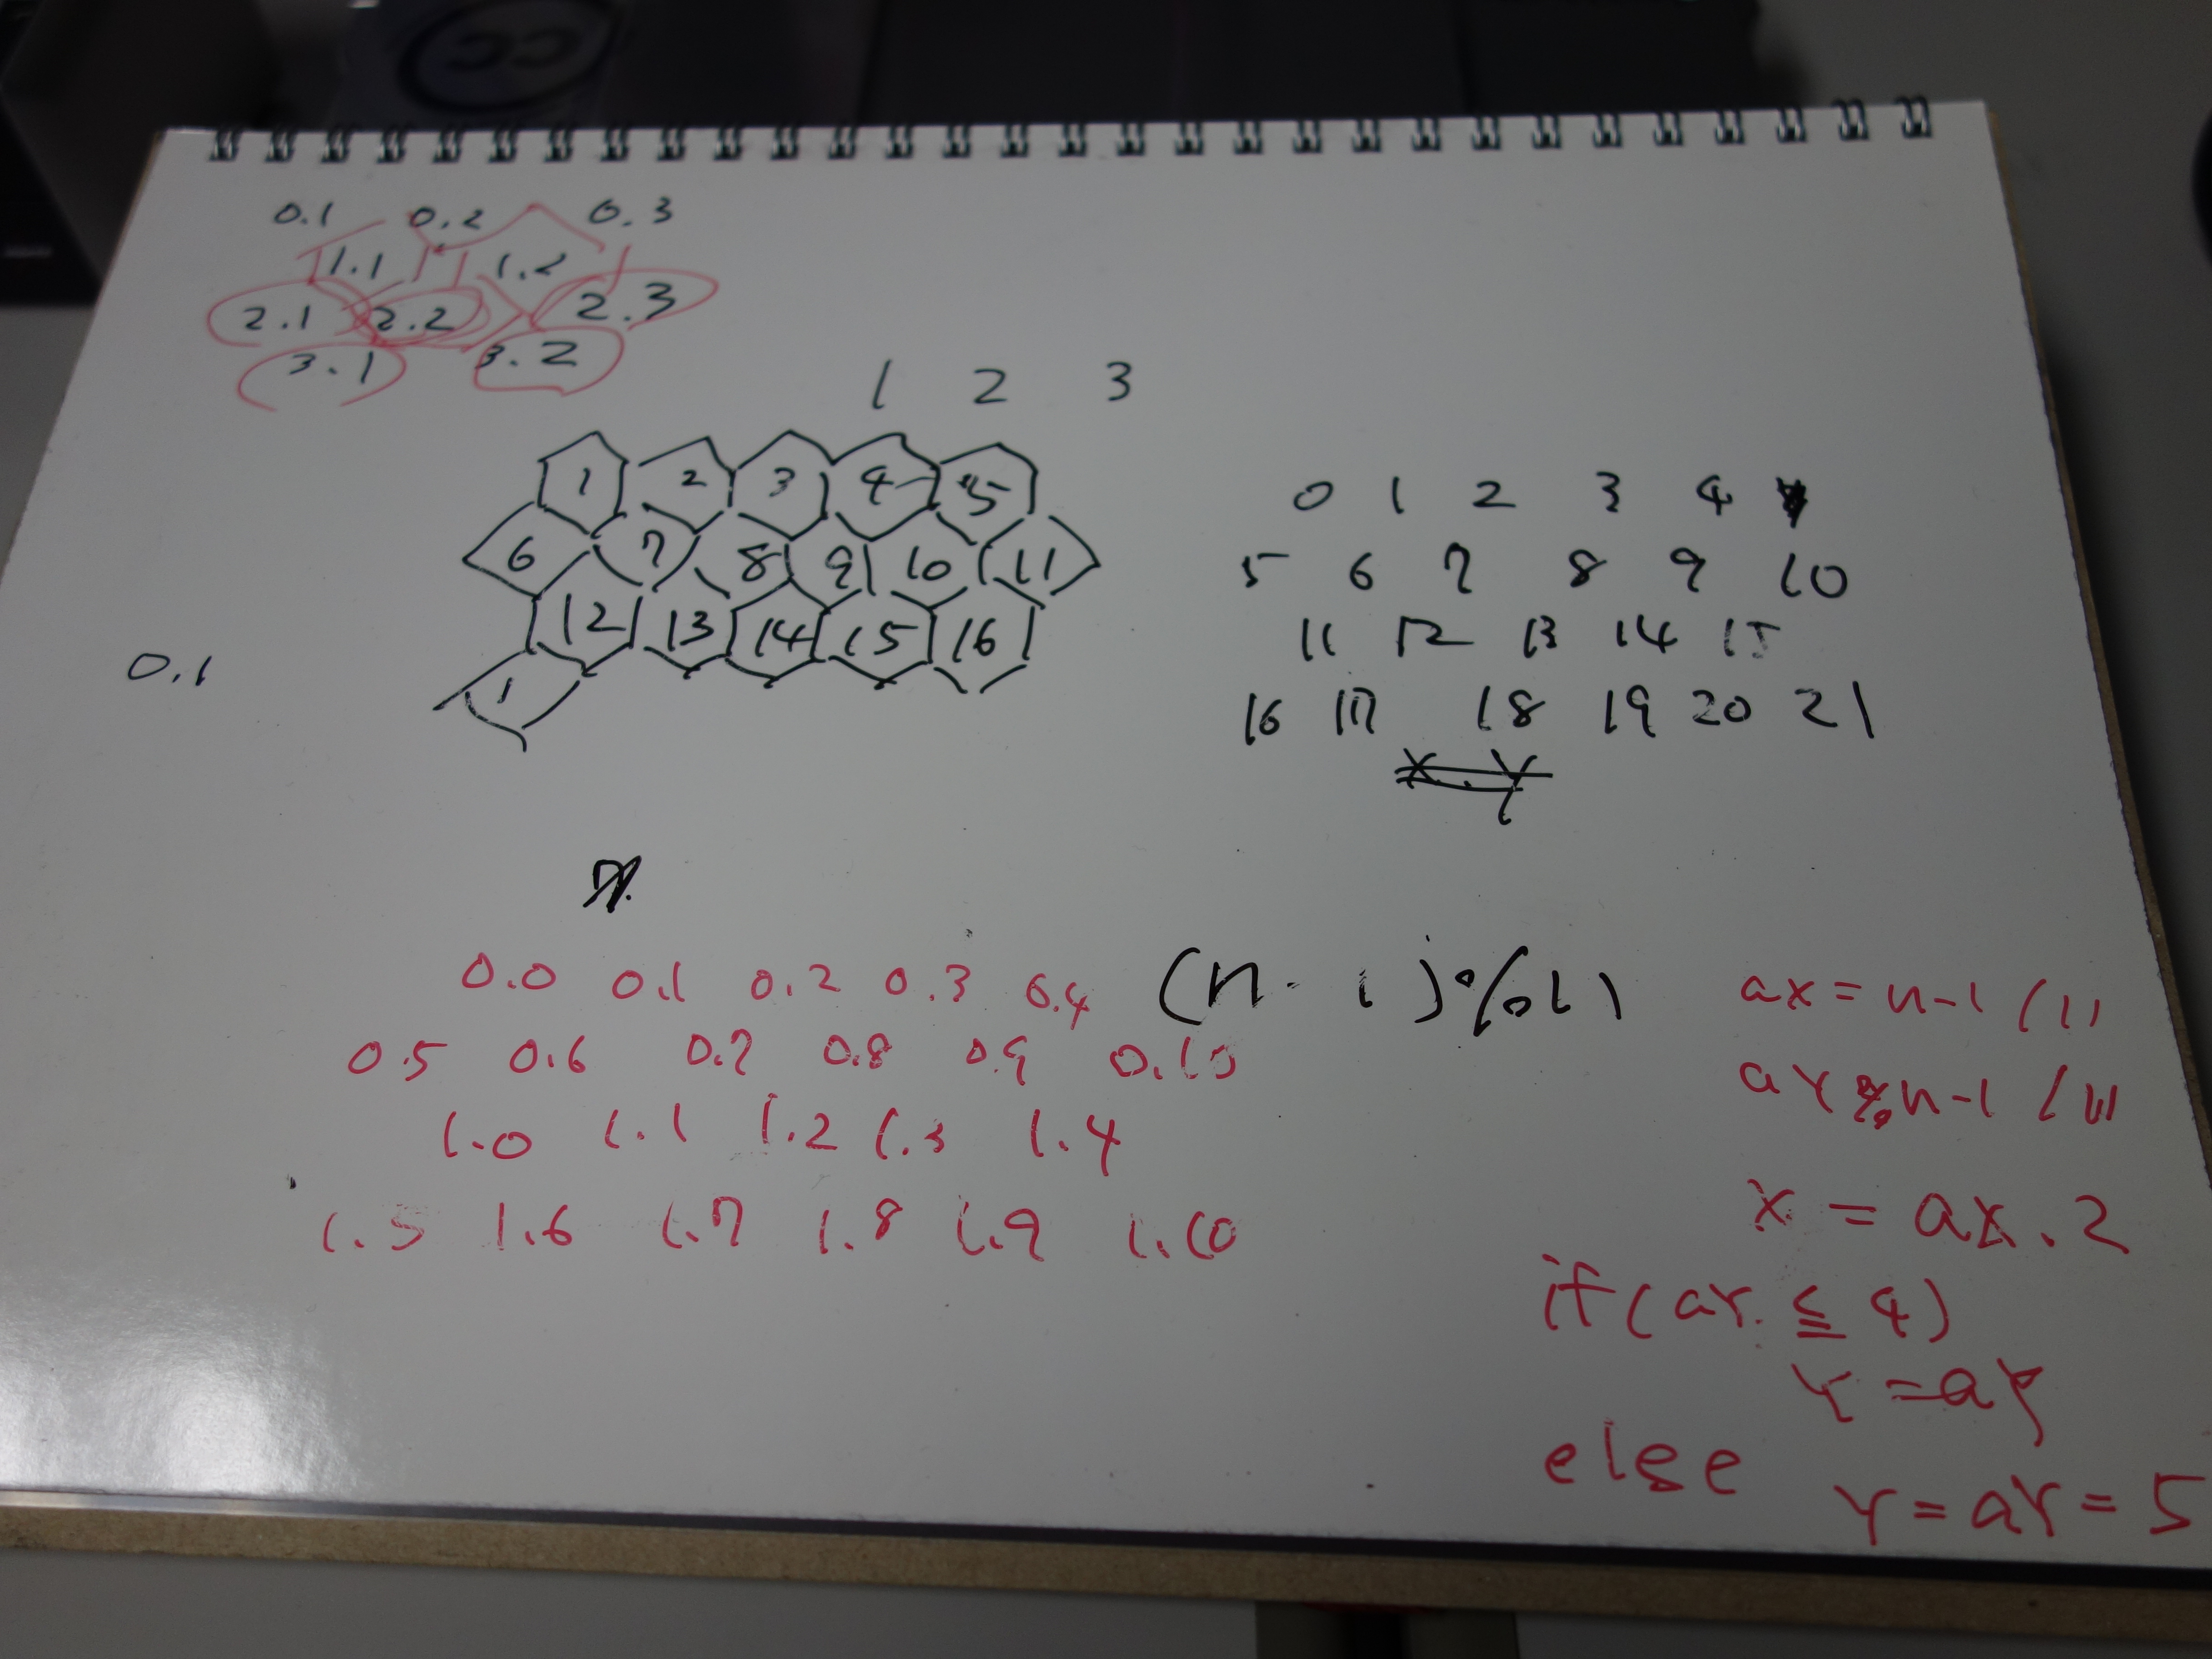 0.1 0.2 0.3
1.1 1.2
2.1 2.2 2.3
3.1 3.2
1 2 3
1 2 3 4 5
6 7 8 9 10 11
12 13 14 15 16
1
0.1
0 1 2 3 4
5 6 7 8 9 10
11 12 13 14 15
16 17 18 19 20 21
X.Y
0.0 0.1 0.2 0.3 0.4
0.5 0.6 0.7 0.8 0.9 0.10
1.0 1.1 1.2 1.3 1.4
1.5 1.6 1.7 1.8 1.9 1.10
(n-1)%11
ax = n-1/11
aY % n-1/11
x = ax.2
if(aY ≦ 4)
Y=aY
else
Y=aY=5